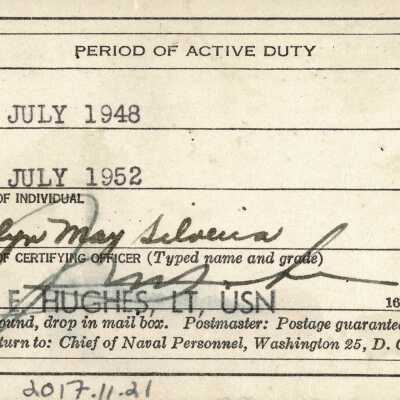 PERIOD OF ACTIVE DUTY
JULY 1948
JULY 1952
OF INDIVIDUAL
lyn May Silveria
OF CERTIFYING OFFICER (Typed name and grade)
E HUGHES, LT, USN
16
ound, drop in mail box. Postmaster: Postage guarantee
turn to: Chief of Naval Personnel, Washington 25, D. C
2017.11.21